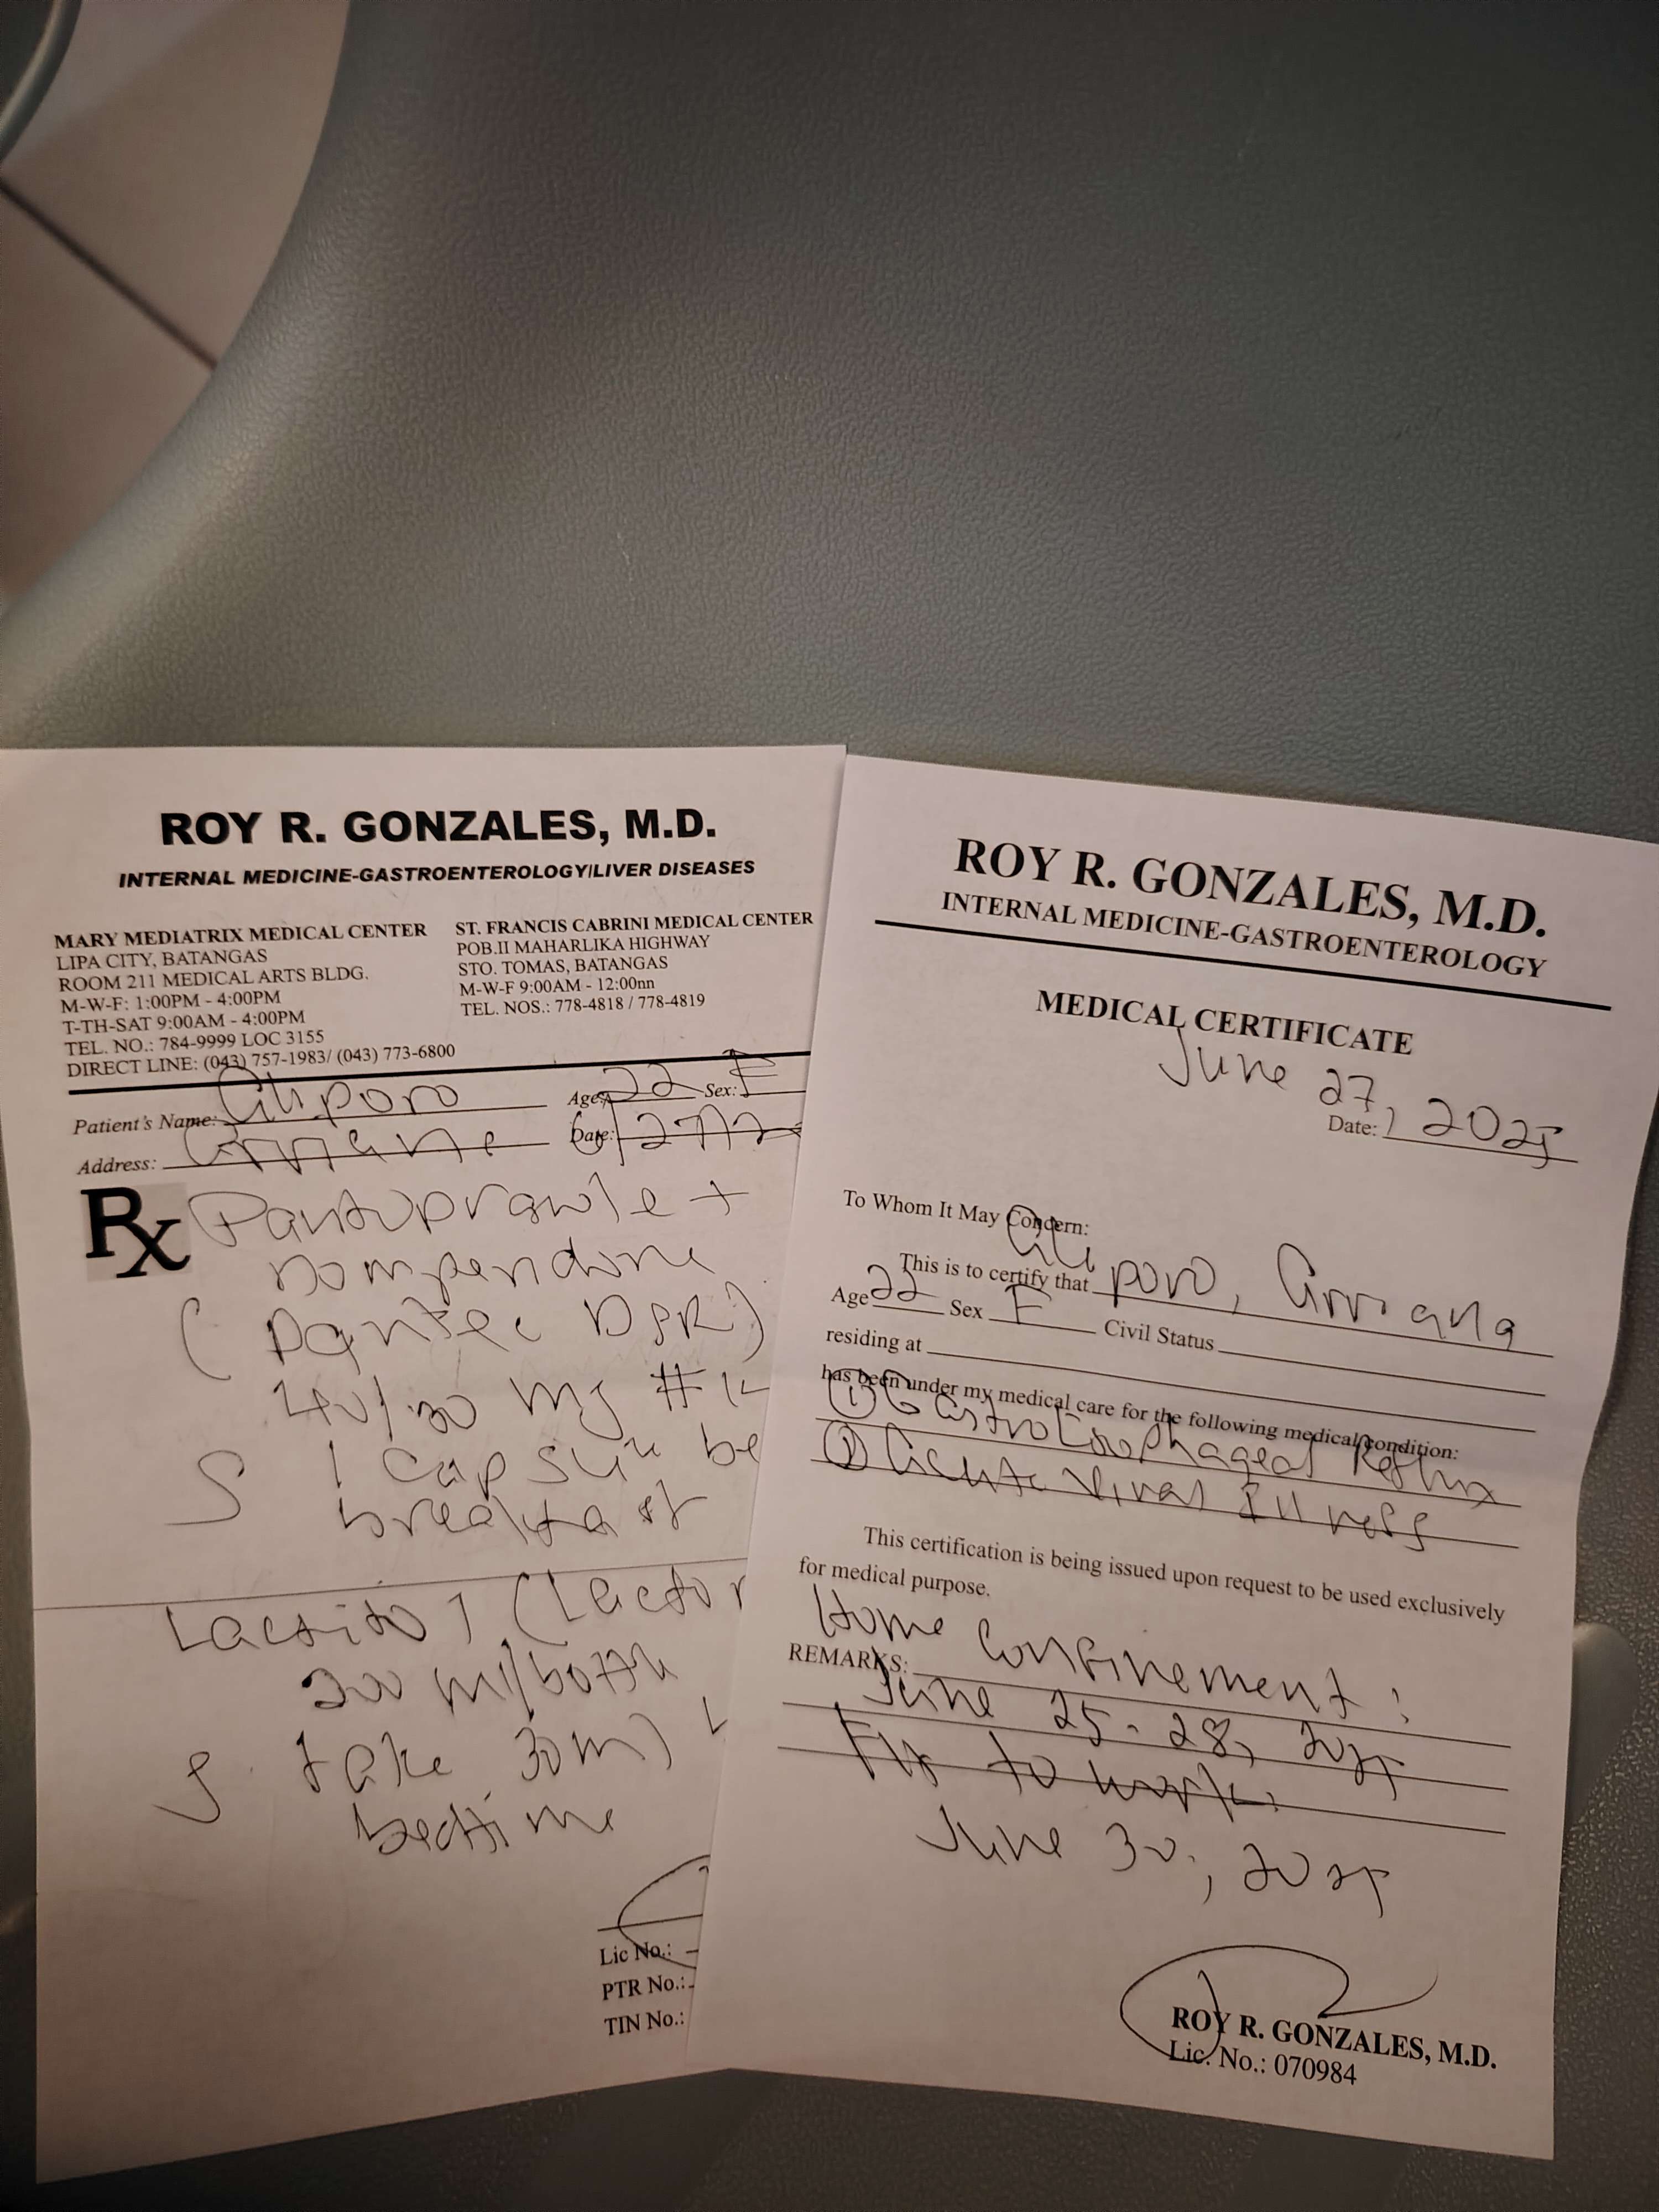 ROY R. GONZALES, M.D.
INTERNAL MEDICINE-GASTROENTEROLOGY/LIVER DISEASES
MARY MEDIATRIX MEDICAL CENTER
LIPA CITY, BATANGAS
ROOM 211 MEDICAL ARTS BLDG.
M-W-F: 1:00PM - 4:00PM
T-TH-SAT 9:00AM - 4:00PM
TEL. NO.: 784-9999 LOC 3155
DIRECT LINE: (043) 757-1983/ (043) 773-6800
ST. FRANCIS CABRINI MEDICAL CENTER
POB.II MAHARLIKA HIGHWAY
STO. TOMAS, BATANGAS
M-W-F 9:00AM - 12:00nn
TEL. NOS.: 778-4818 / 778-4819
Patient's Name: Age: 22 Sex: F
Address: Date: 6/27/2
Rx Pantoprazole +
Domperidone
(Pantec DSR)
40/30 mg #
S 1 capsule be
breakfast
Lactitol (Lacto
200 ml/bottle
S take 30ml
bedtime
Lic No.:
PTR No.:
TIN No.:
ROY R. GONZALES, M.D.
INTERNAL MEDICINE-GASTROENTEROLOGY
MEDICAL CERTIFICATE
June 27, 2025
Date:
To Whom It May Concern:
This is to certify that
Age 22 Sex F Civil Status
residing at
has been under my medical care for the following medical condition:
① Gastroesophageal Reflux
② Acute Viral Illness
This certification is being issued upon request to be used exclusively
for medical purpose.
REMARKS: Home Confinement:
June 25-28, 2025
Fit to work:
June 30, 2025
ROY R. GONZALES, M.D.
Lic. No.: 070984